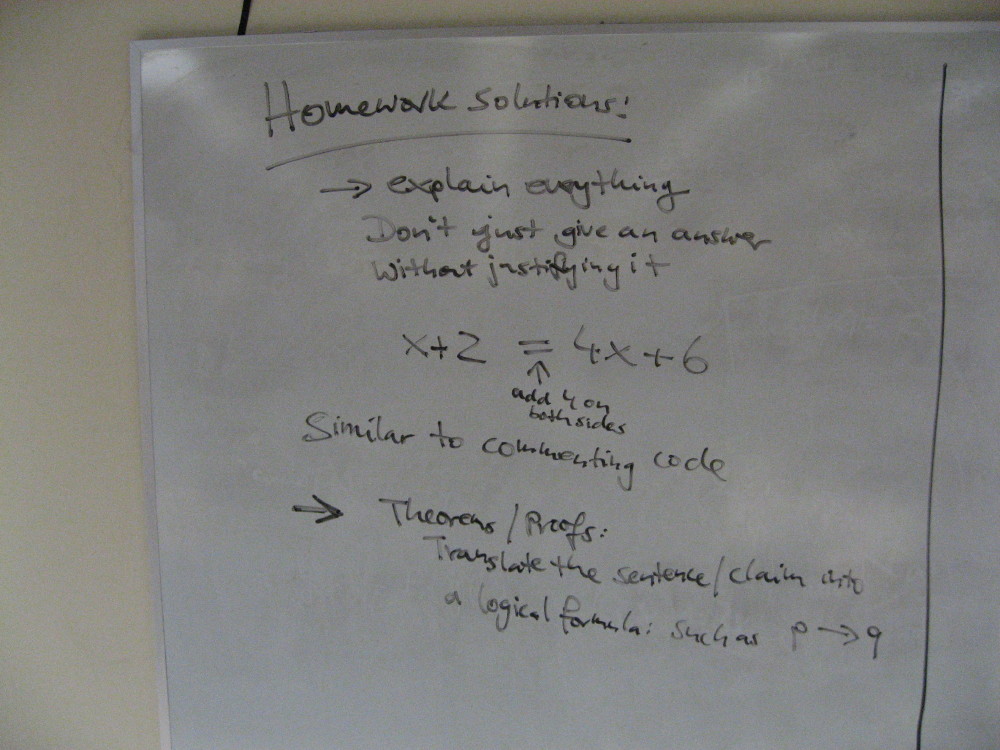 Homework solutions:
→ explain everything
Don't just give an answer
Without justifying it
x+2 = 4x+6
↑
add 4 on
both sides
Similar to commenting code
→ Theorems/Proofs:
Translate the sentence/claim into
a logical formula: such as p → q